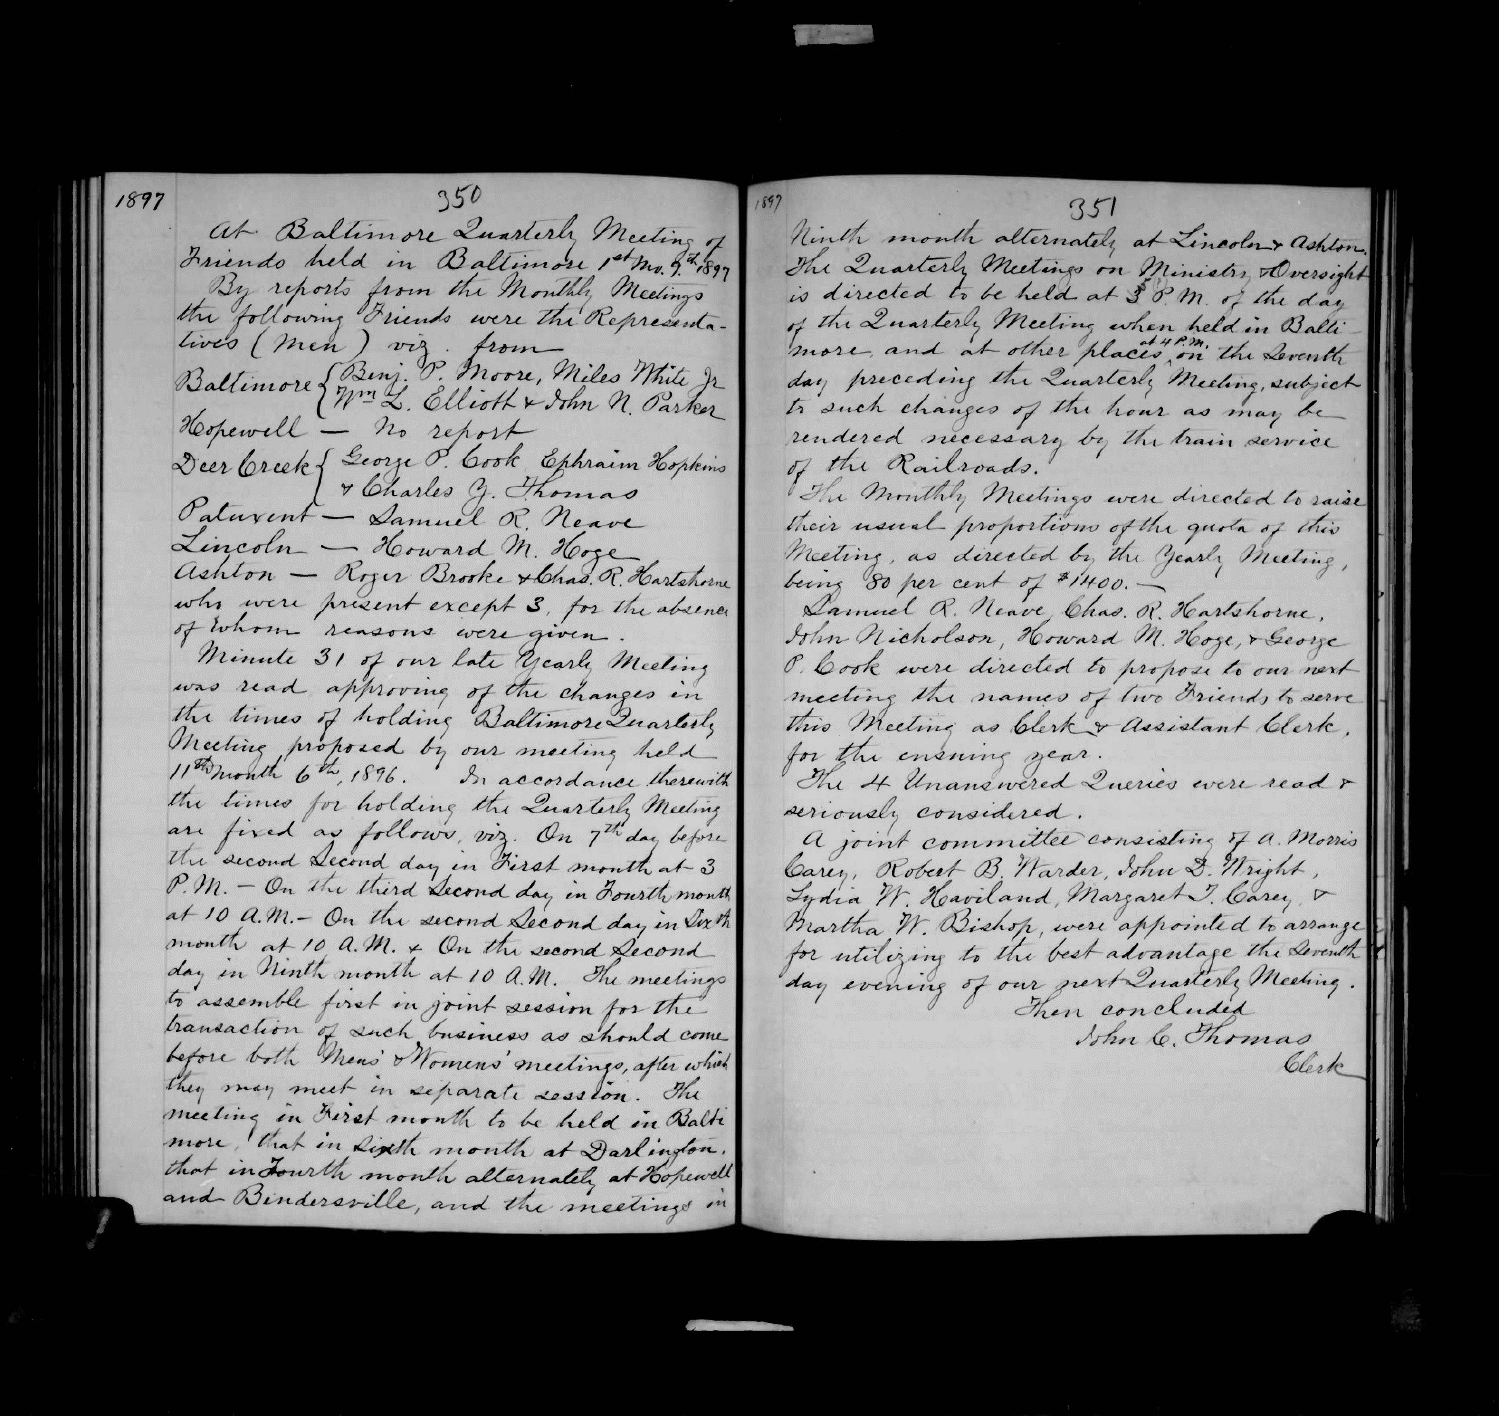 1897
350
At Baltimore Quarterly Meeting of
Friends held in Baltimore 1st Mo. 9th 1897
By reports from the Monthly Meetings
the following Friends were the Representa-
tives (Men) viz. from
Baltimore { Benj. P. Moore, Miles White Jr
Wm L. Elliott & John N. Parker
Hopewell — No report
Deer Creek { George P. Cook Ephraim Hopkins
& Charles Y. Thomas
Patuxent — Samuel R. Neave
Lincoln — Howard M. Hoge
Ashton — Roger Brooke & Chas. R. Hartshorne
who were present except 3, for the absence
of whom reasons were given.
Minute 31 of our late Yearly Meeting
was read approving of the changes in
the times of holding Baltimore Quarterly
Meeting proposed by our meeting held
11th month 6th, 1896. In accordance therewith
the times for holding the Quarterly Meeting
are fixed as follows, viz. On 7th day before
the second Second day in First month at 3
P.M. — On the third Second day in Fourth month
at 10 A.M. — On the second Second day in Sixth
month at 10 A.M. & On the second Second
day in Ninth month at 10 A.M. The meetings
to assemble first in joint session for the
transaction of such business as should come
before both Mens' & Womens' meetings, after which
they may meet in separate session. The
meeting in First month to be held in Balti
more, that in Sixth month at Darlington,
that in Fourth month alternately at Hopewell
and Bendersville, and the meetings in
1897
351
Ninth month alternately at Lincoln & Ashton.
The Quarterly Meetings on Ministry & Oversight
is directed to be held at 3 P.M. of the day
of the Quarterly Meeting when held in Balti-
more, and at other places at 4 P.M. on the Seventh
day preceding the Quarterly Meeting, subject
to such changes of the hour as may be
rendered necessary by the train service
of the Railroads.
The Monthly Meetings were directed to raise
their usual proportions of the quota of this
Meeting, as directed by the Yearly Meeting,
being 80 per cent of $1400. —
Samuel R. Neave, Chas. R. Hartshorne,
John Nicholson, Howard M. Hoge, & George
P. Cook were directed to propose to our next
meeting the names of two Friends to serve
this Meeting as Clerk & Assistant Clerk,
for the ensuing year.
The 4 Unanswered Queries were read &
seriously considered.
A joint committee consisting of A. Morris
Carey, Robert B. Warder, John D. Wright,
Lydia W. Haviland, Margaret T. Carey, &
Martha W. Bishop, were appointed to arrange
for utilizing to the best advantage the Seventh
day evening of our next Quarterly Meeting.
Then concluded
John C. Thomas
Clerk